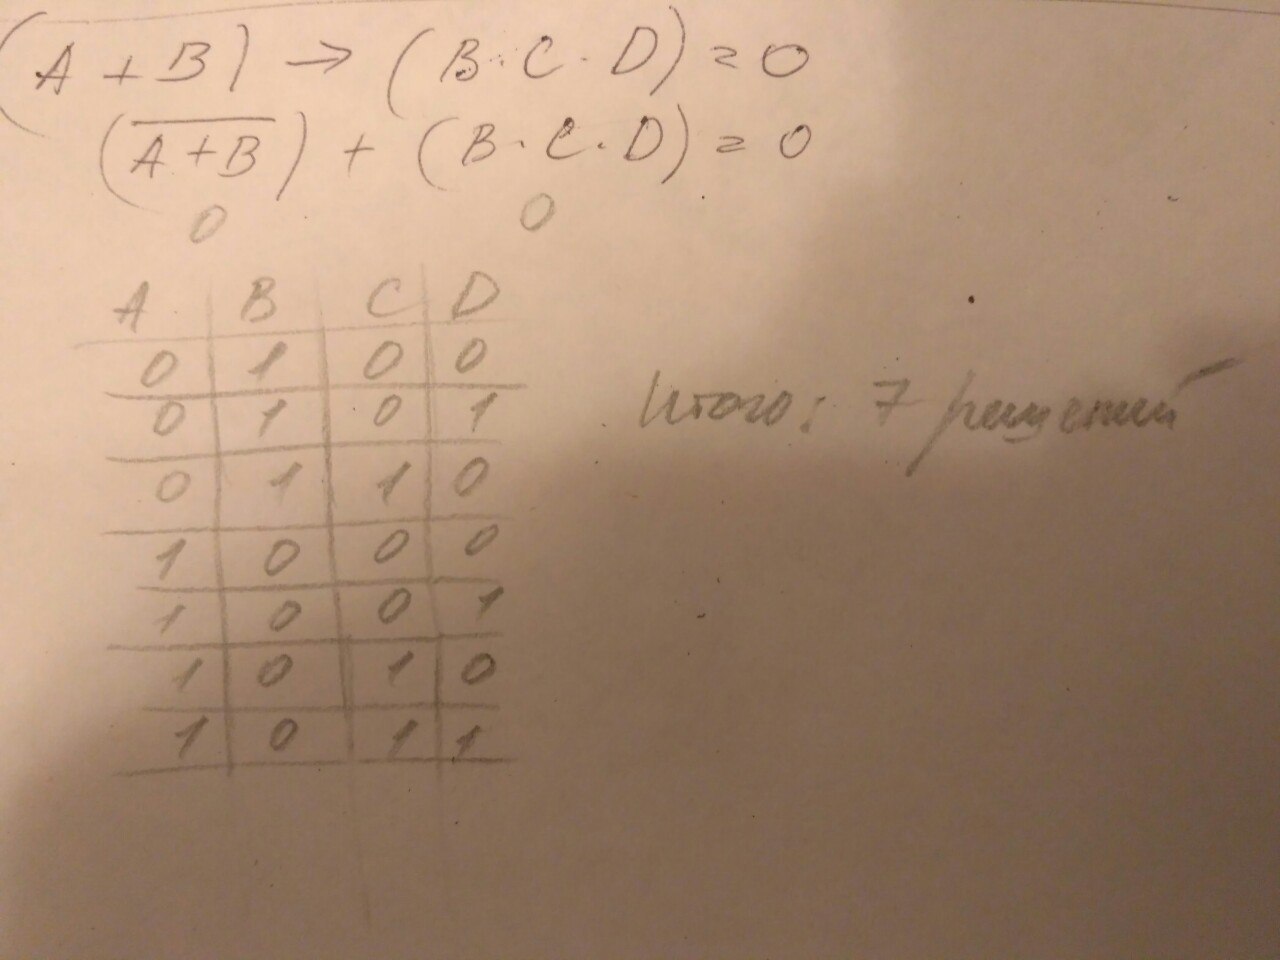 (A + B) → (B · C · D) = 0
(\overline{A + B}) + (B · C · D) = 0
0 0
A B C D
0 1 0 0
0 1 0 1
0 1 1 0
1 0 0 0
1 0 0 1
1 0 1 0
1 0 1 1
Итого: 7 решений